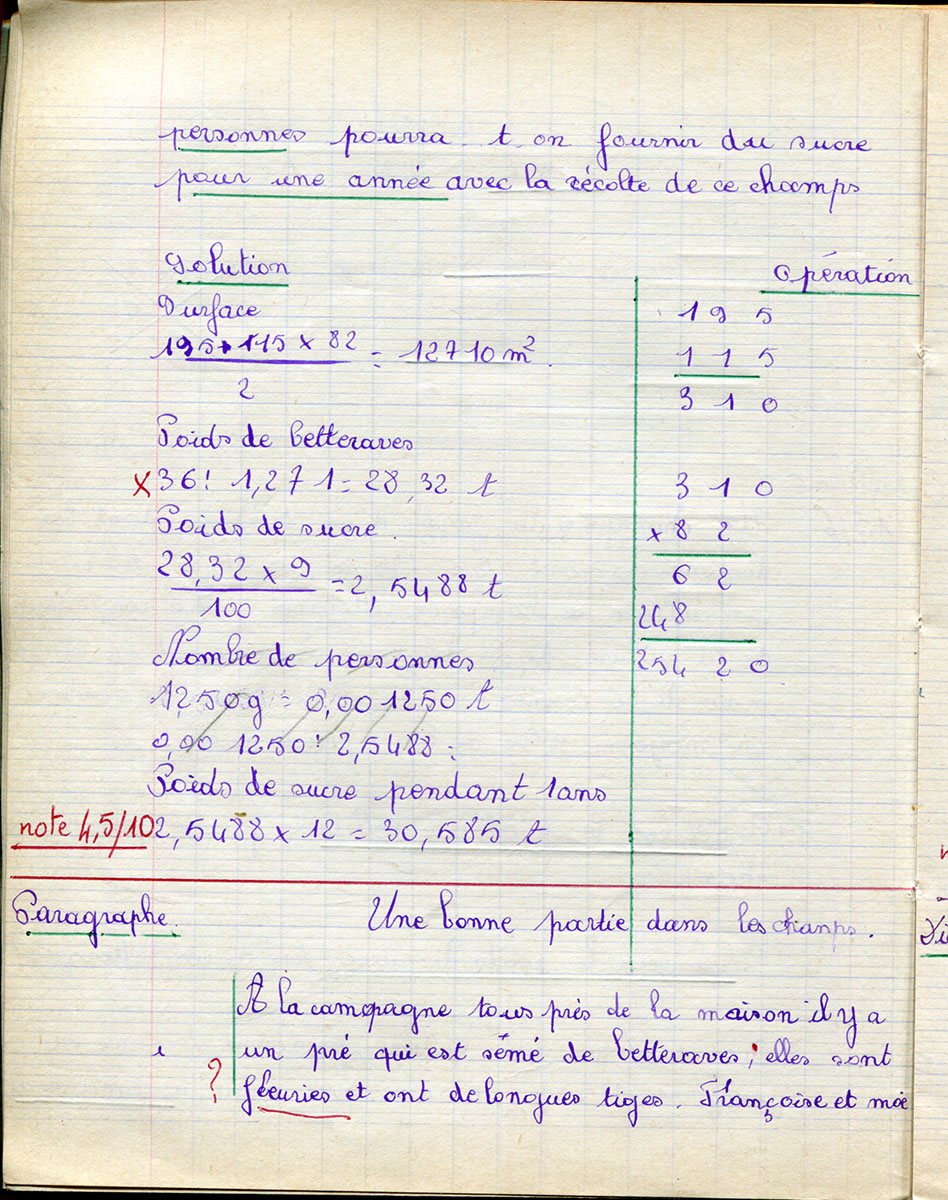 personnes pourra t on fournir du sucre
pour une année avec la récolte de ce champs
Solution
Opération
Surface
195 + 115 x 82 = 12710 m².
2
Poids de betteraves
x 36 : 1,271 = 28,32 t
Poids de sucre.
28,32 x 9 = 2,5488 t
100
Nombre de personnes
1250g = 0,00 1250 t
0,00 1250 : 2,5488 =
Poids de sucre pendant 1 ans
note 4,5/10 2,5488 x 12 = 30,585 t
195
115
310
310
x 82
62
248
25420
Paragraphe.
Une bonne partie dans les champs.
A la campagne tous près de la maison il y a
un pré qui est sémé de betteraves ; elles sont
? fleuries et ont de longues tiges. Françoise et moi